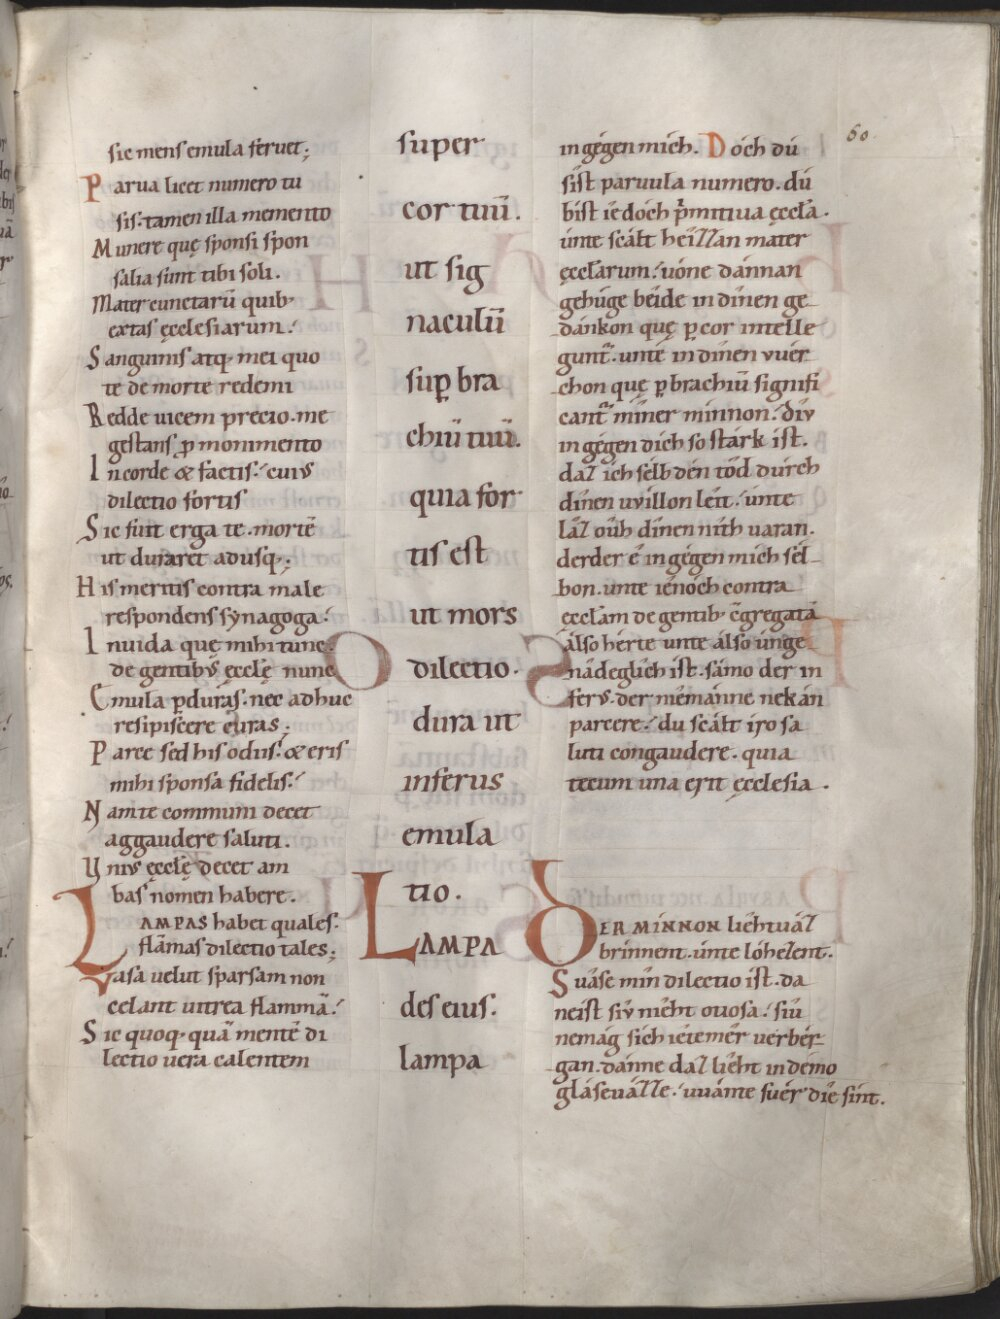 60.
sic mens emula feruet;
Parua licet numero tu
sis. tamen illa memento
Munere quę sponsi spon
salia sunt tibi soli.
Mater cunctarū quib
extas ęcclesiarum.
Sanguinis atq; mei quo
te de morte redemi
Redde uicem precio. me
gestans p̱ monimento
In corde & factis. cuius
dilectio fortis
Sic fuit erga te. mortē
ut duraret adusq;.
His meritis contra male
respondens synagoga.
Inuida quę mihi tunc.
de gentibus ęcclę nunc
Emula p̱duras. nec adhuc
resipiscere curas;
Parce sed his odiis. & eris
mihi sponsa fidelis.
Nam te communi decet
aggaudere saluti.
Vnius ęcclę decet am
bas nomen habere.
LAMPAS habet quales.
flāmas dilectio tales;
Vasa uelut sparsam non
celant uitrea flammā.
Sic quoq; quā mentē di
lectio uera calentem
super
cor tuū.
ut sig
naculū
sup̱ bra
chiū tuū.
quia for
tis est
ut mors
dilectio.
dura ut
inferus
emula
tio.
LAMPA
des eius.
lampa
ingégen mich. Doh dú
sist paruula numero. dú
bist ie dóch p̄mitiua ęccła.
únte scált héizzan mater
ęccłarum. uóne dánnan
gehúge béide in dínen ge
dánkon quę p̱ cor intelle
guntᷣ. unte in dínen vuér
chon quę p̱ brachiū signifi
cantᷣ mîner mínnon. div
ingégen dích so stárk ist.
daz ich sélb den tôd dúrch
dînen uvíllon léit. únte
lâz oûh dînen nîth uaran.
der der ê ingégen mich sél
bon. unte iénoch contra
ęccłam de gentib; c̄gregatā
álso hérte unte álso únge
nâdeglich ist. sámo der in
fer. der niemánne nekán
parcere. du scált iro sa
luti congaudere. quia
tecum una erit ęcclesia.
DER MINNON liehtuáz
brínnent. únte lóhezent.
Suâse mîn dilectio ist. da
neist siv nieht ôvosa. siu
nemág sich ieiemêr verbér
gan. dánne daz lieht in démo
gláseuázze. uuánte suér die sint.